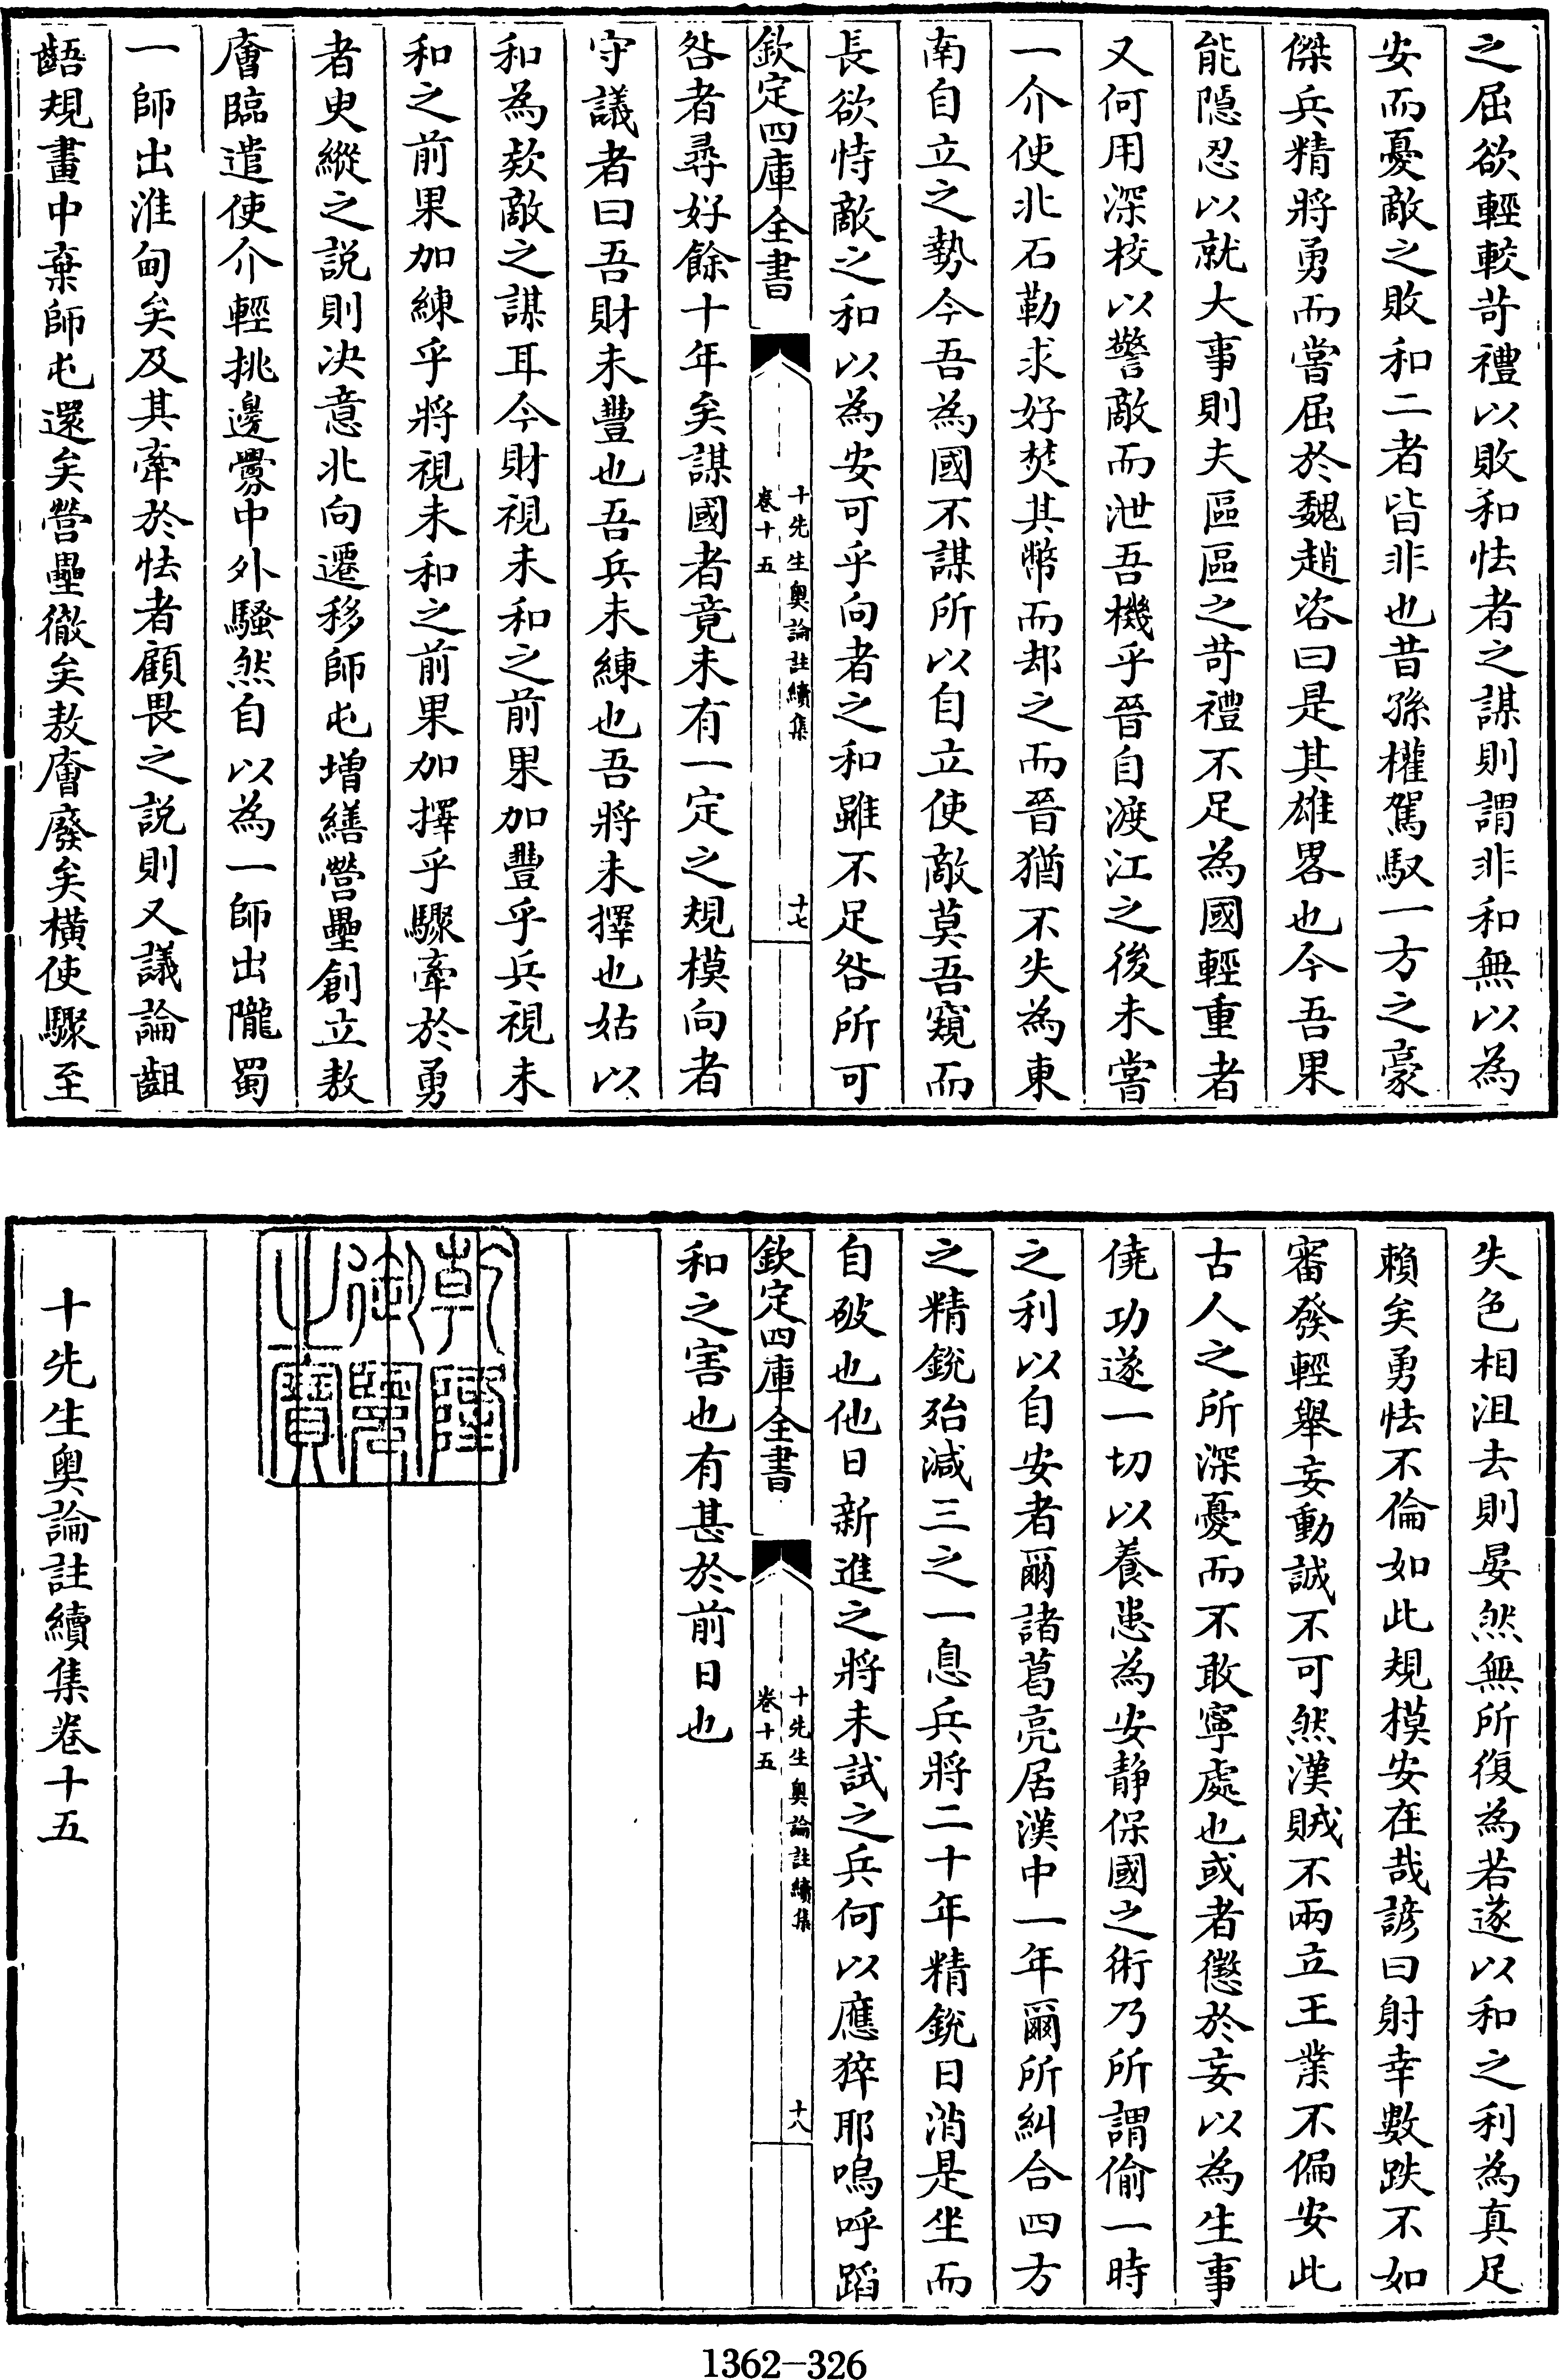 之屈欲輕較苛禮以敗和怯者之謀則謂非和無以為
安而憂敵之敗和二者皆非也昔孫權駕馭一方之豪
傑兵精將勇而嘗屈於魏趙咨曰是其雄畧也今吾果
能隱忍以就大事則夫區區之苛禮不足為國輕重者
又何用深校以警敵而泄吾機乎晉自渡江之後未嘗
一介使北石勒求好焚其幣而却之而晉猶不失為東
南自立之勢今吾為國不謀所以自立使敵莫吾窺而
長欲恃敵之和以為安可乎向者之和雖不足咎所可
欽定四庫全書
十先生奧論註續集
卷十五
十七
咎者尋好餘十年矣謀國者竟未有一定之規模向者
守議者曰吾財未豐也吾兵未練也吾將未擇也姑以
和為欵敵之謀耳今財視未和之前果加豐乎兵視未
和之前果加練乎將視未和之前果加擇乎驟牽於勇
者臾縱之説則决意北向遷移師屯增繕營壘創立敖
廥臨遣使介輕挑邊釁中外騷然自以為一師出隴蜀
一師出淮甸矣及其牽於怯者顧畏之説則又議論齟
齬規畫中棄師屯還矣營壘徹矣敖廥廢矣横使驟至
失色相沮去則晏然無所復為若遂以和之利為真足
賴矣勇怯不倫如此規模安在哉諺曰射幸數跌不如
審發輕舉妄動誠不可然漢賊不兩立王業不偏安此
古人之所深憂而不敢寧處也或者懲於妄以為生事
僥功遂一切以養患為安靜保國之術乃所謂偷一時
之利以自安者爾諸葛亮居漢中一年爾所糾合四方
之精銳殆減三之一息兵將二十年精銳日消是坐而
自破也他日新進之將未試之兵何以應猝耶嗚呼蹈
欽定四庫全書
十先生奧論註續集
卷十五
十八
和之害也有甚於前日也
乾隆
御覽
之寶
十先生奧論註續集卷十五
1362-326